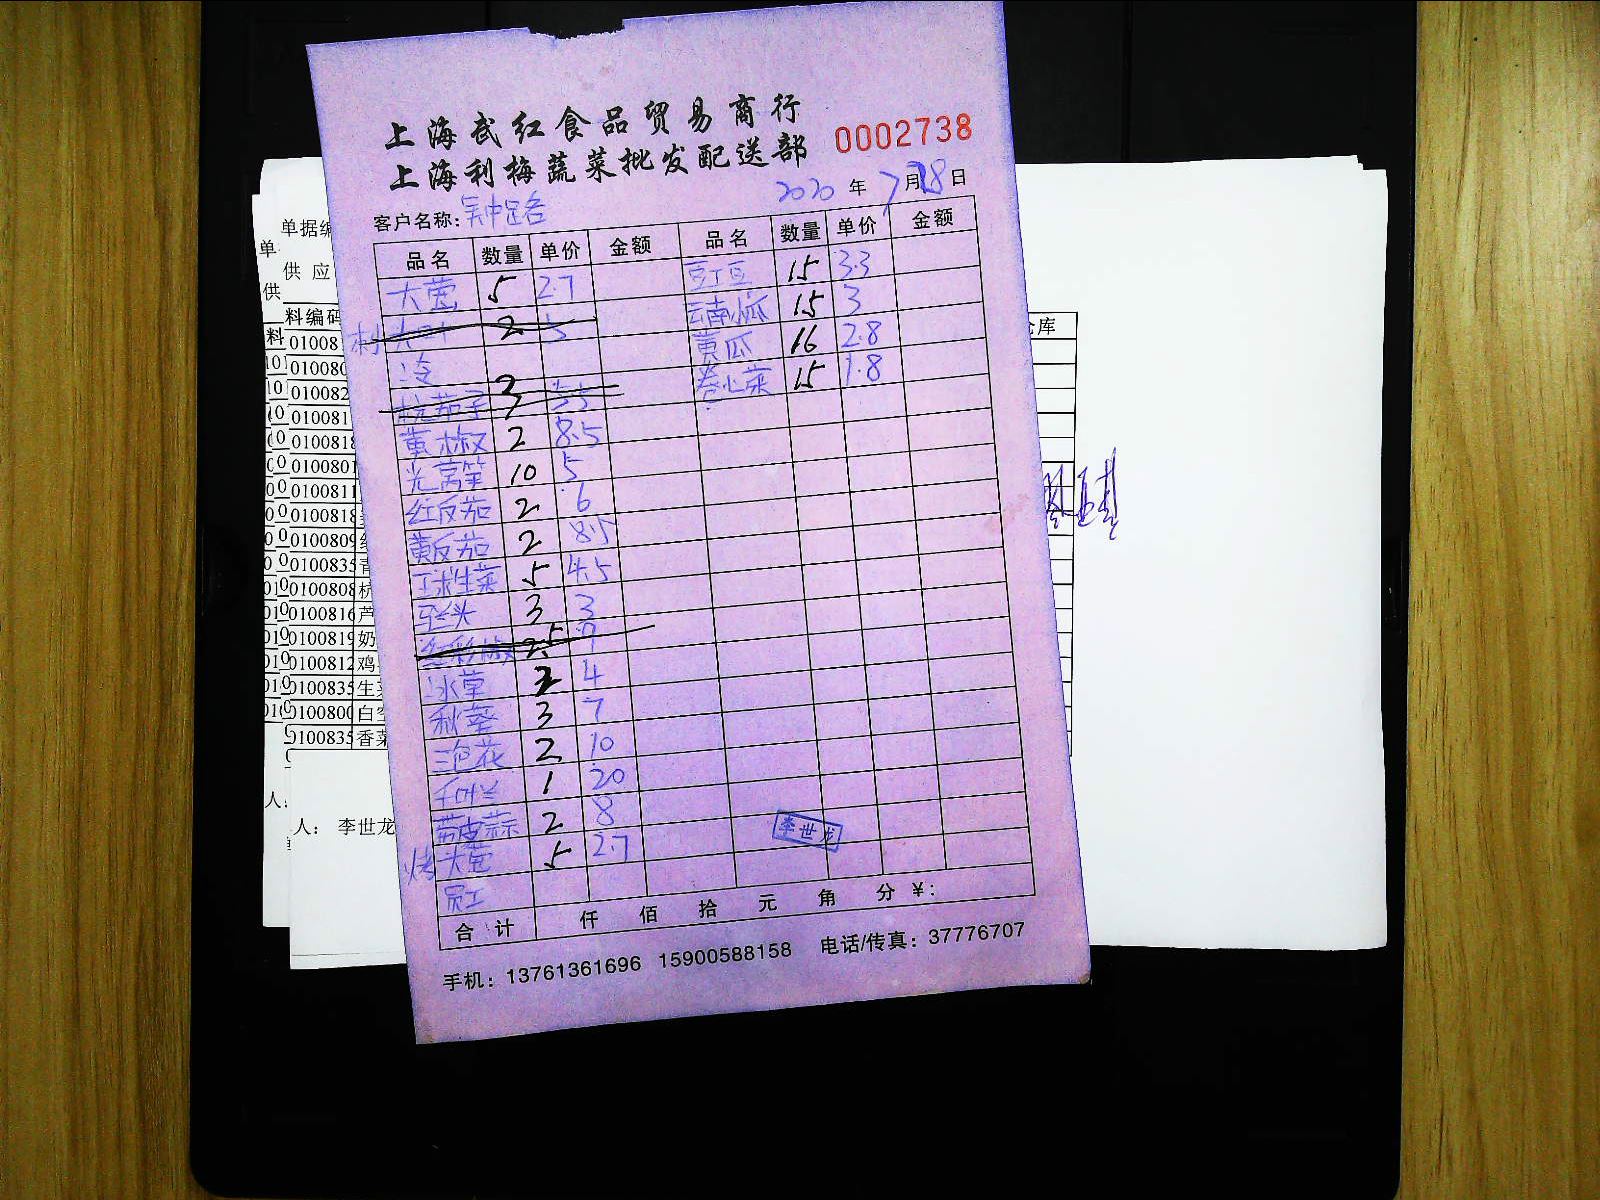 上海武红食品贸易商行
上海利梅蔬菜批发配送部
0002738
客户名称:吴中路 2020年7月18日
品名 数量 单价 金额 品名 数量 单价 金额
大葱 5 2.7 豇豆 15 3.3
2 5 云南小瓜 15 3
冷 黄瓜 16 2.8
杭茄子 5.5 卷心菜 15 1.8
黄椒 2 8.5
光莴笋 10 5
红反茄 2 6
黄反茄 2 8.5
球生菜 5 4.5
3 3
红彩椒 2.5 7
冰草 4
秋葵 3 7
三色花 2 10
千叶兰 1 20
剪皮蒜 2 8
烤 大葱 5 2.7
员工
李世龙
合计 仟 佰 拾 元 角 分 ¥:
手机: 13761361696 15900588158 电话/传真: 37776707
单据编
单
供应
供
料编码
料
仓库
010081
010080
010082
010081
010081
010080
010081
0100818
0100809
0100835 青
0100808 杭
0100816 芦
0100819 奶
0100812 鸡
0100835 生菜
0100800 白
0100835 香菜
人:
人: 李世龙